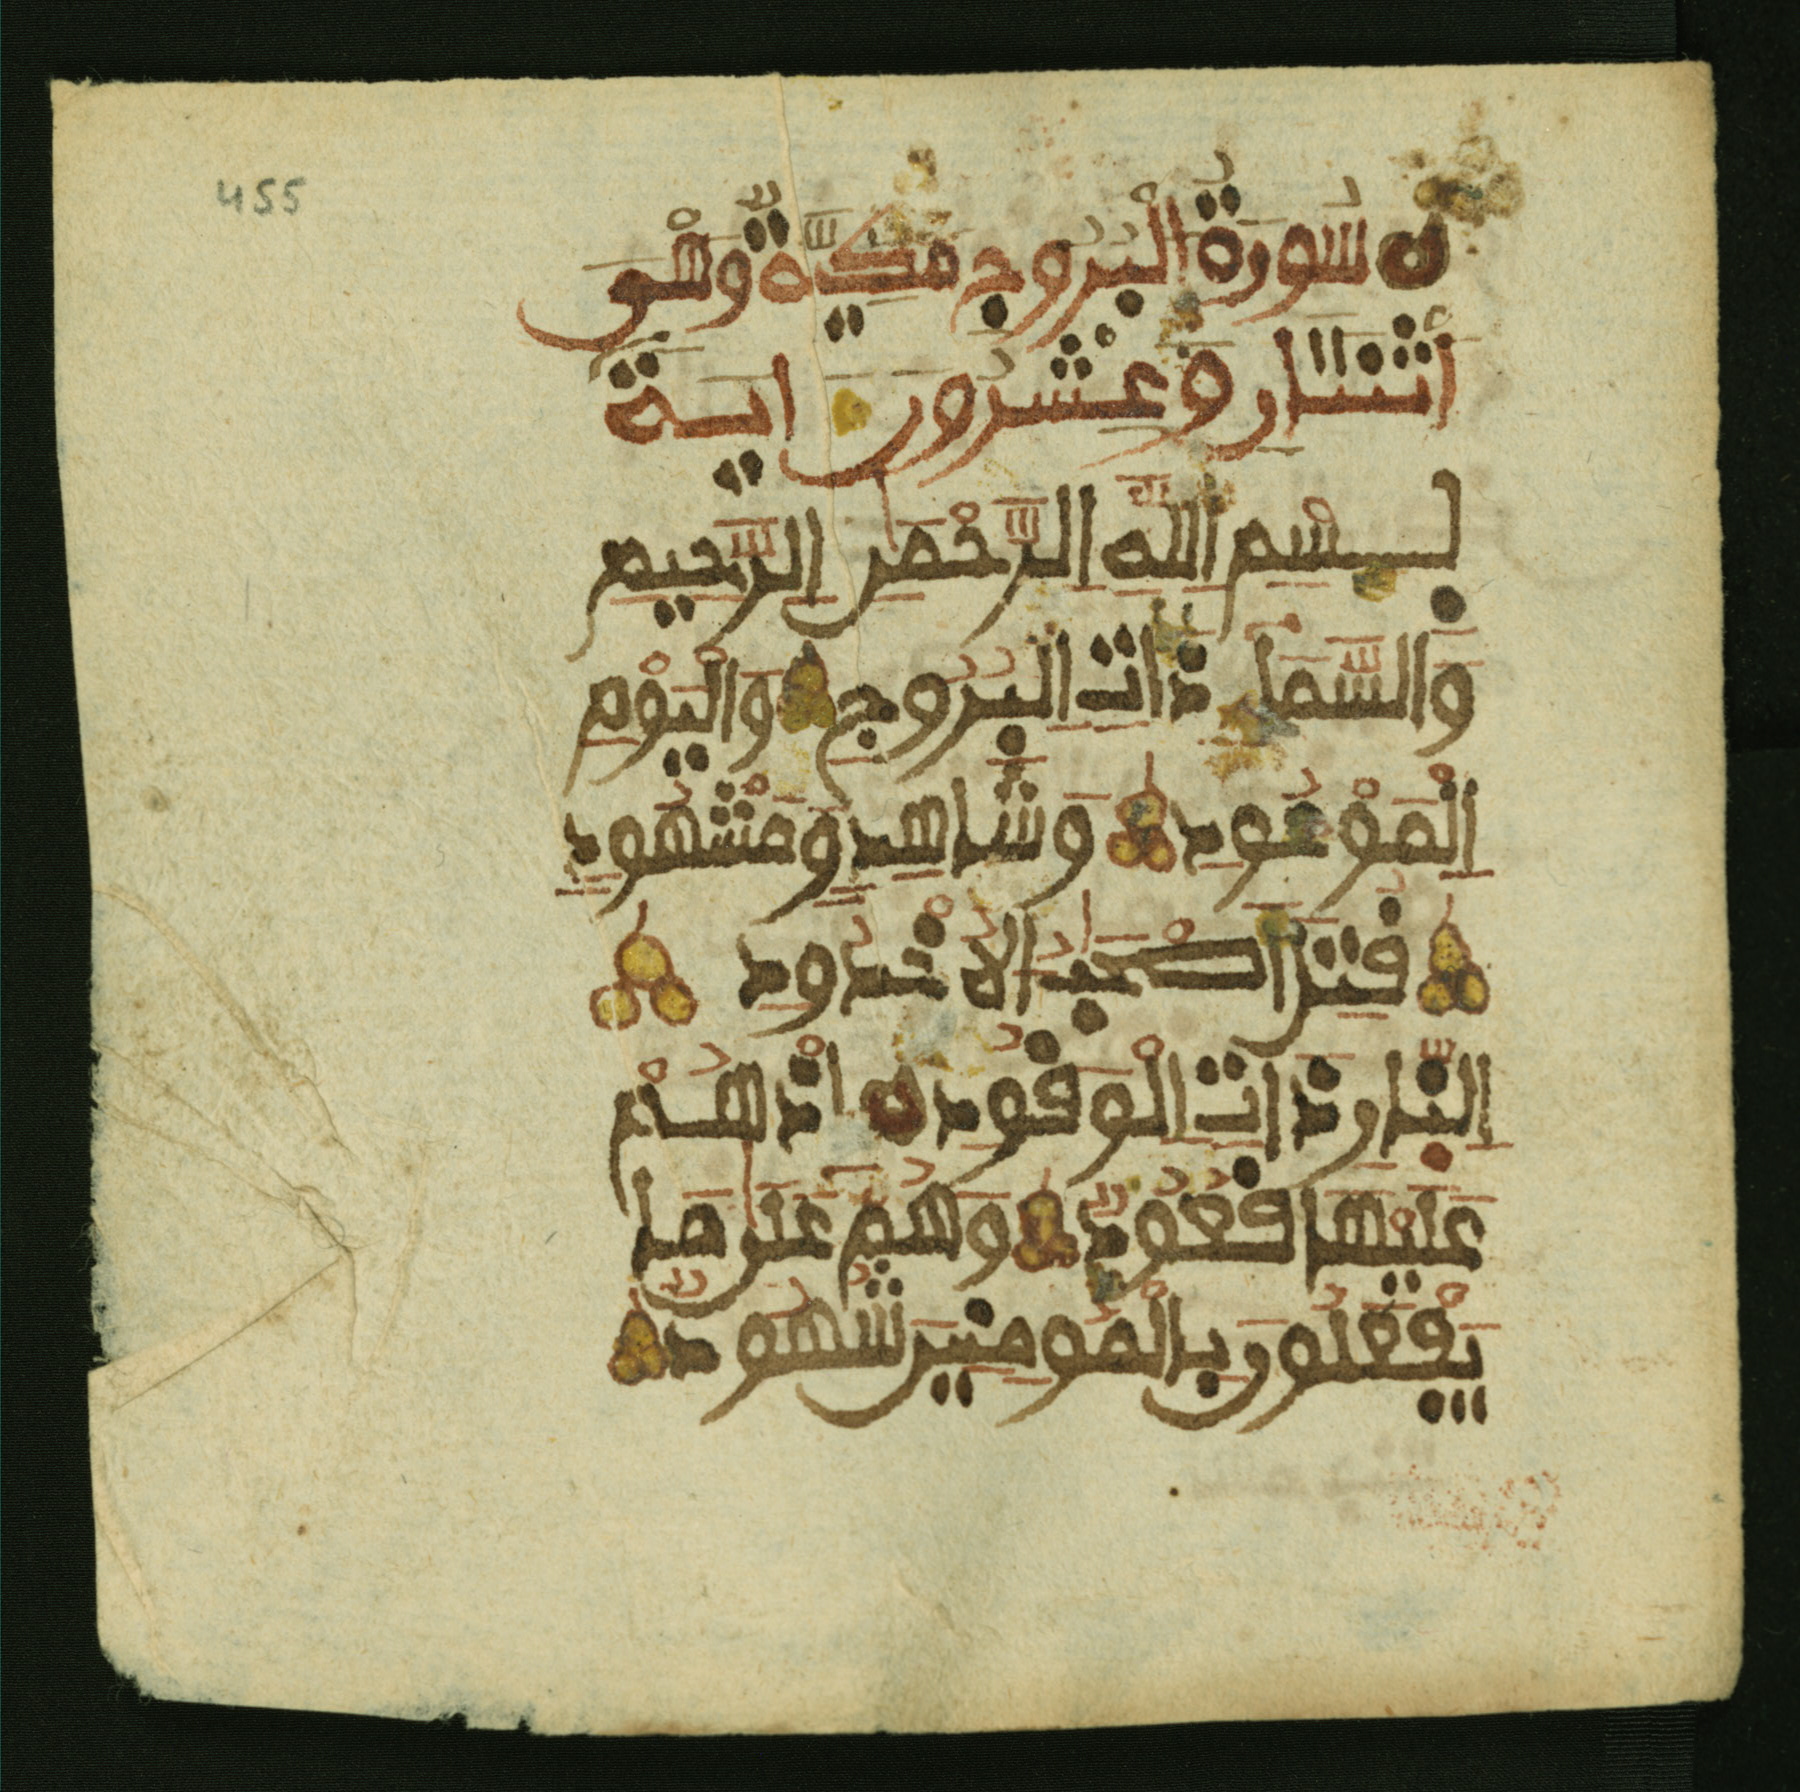 455
سورة البروج مكية وهي
اثنتان وعشرون اية
بسم الله الرحمن الرحيم
والسما ذات البروج واليوم
الموعود وشاهد ومشهود
قتل اصحب الاخدود
النار ذات الوقود اذ هم
عليها قعود وهم على ما
يفعلون بالمومنين شهود